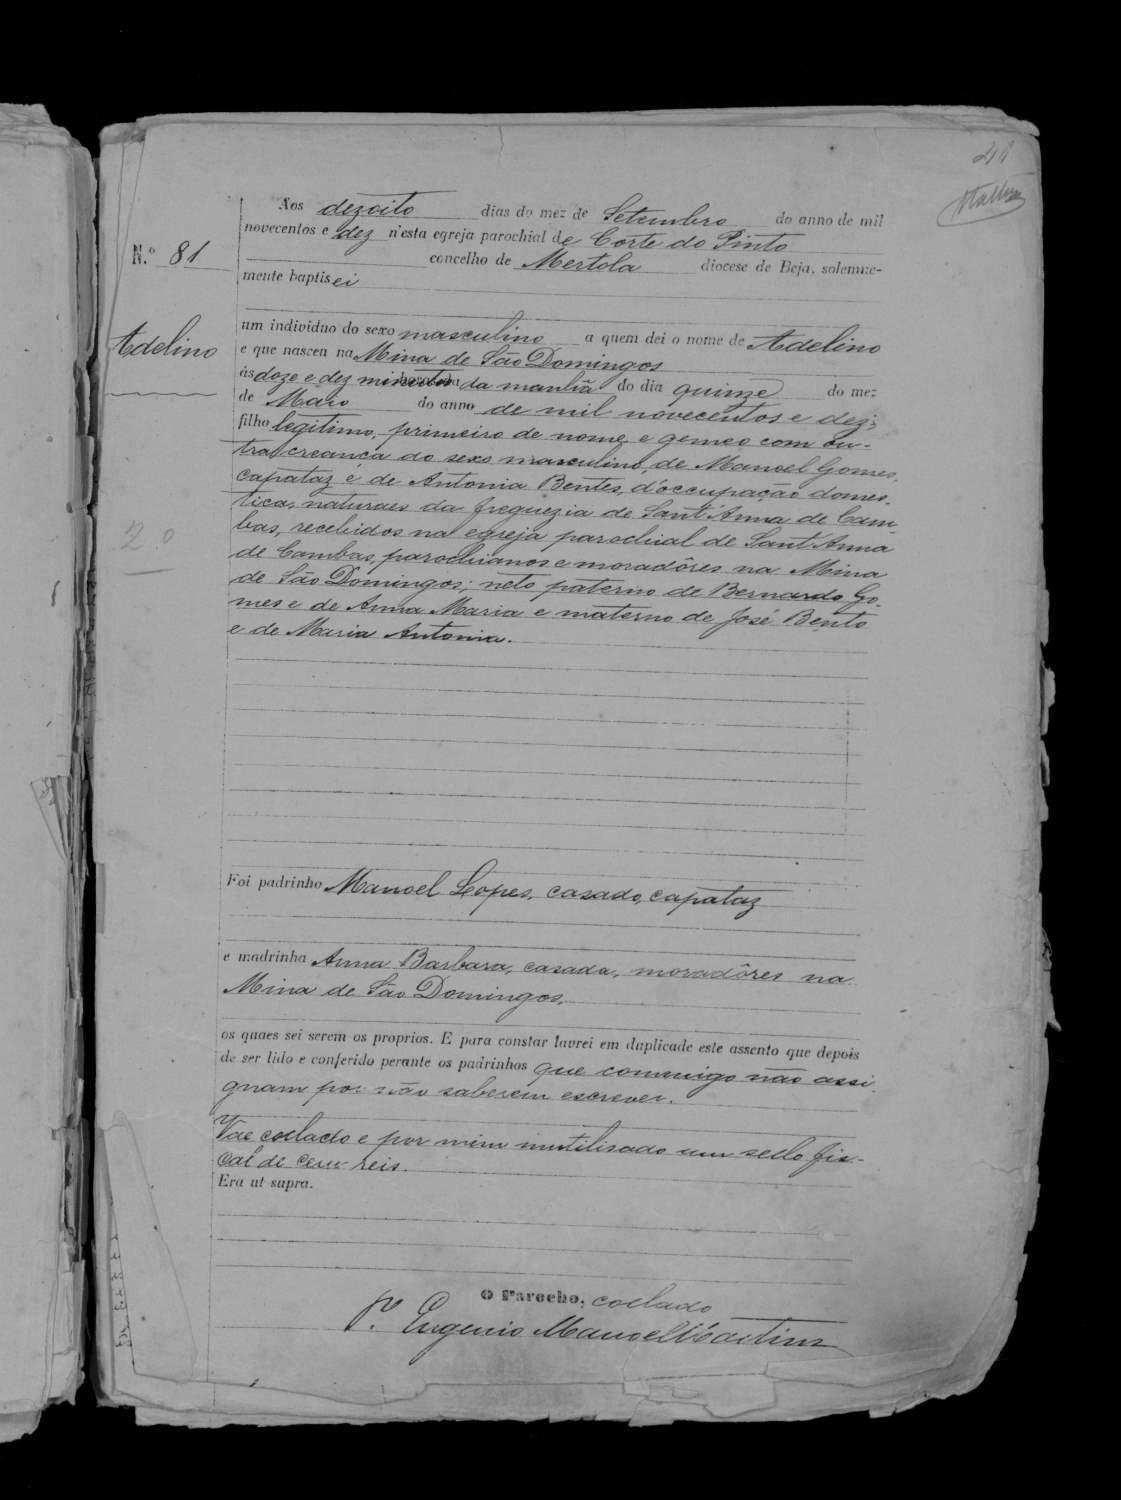 41
Aos dezoito dias do mez de Setembro do anno de mil
novecentos e dez n'esta egreja parochial de Corte do Pinto
N.º 81
concelho de Mertola diocese de Beja, solemne-
mente baptisei
um individuo do sexo masculino a quem dei o nome de Adelino
Adelino
e que nasceu na Mina de São Domingos
ás doze e dez minutos da manhã do dia quinze do mez
de Maio do anno de mil novecentos e dez;
filho legitimo, primeiro de nome e gemeo com ou-
tra creança do sexo masculino, de Manoel Gomes,
capataz e de Antonia Bentes, d'occupação domes-
tica, naturaes da freguezia de Sant'Anna de Cam-
bas, recebidos na egreja parochial de Sant'Anna
2º
de Cambas, parochianos e moradôres na Mina
de São Domingos; neto paterno de Bernardo Go-
mes e de Anna Maria e materno de José Bento
e de Maria Antonia.
Foi padrinho Manoel Lopes, casado, capataz
e madrinha Anna Barbara, casada, moradôres na
Mina de São Domingos,
os quaes sei serem os proprios. E para constar lavrei em duplicado este assento que depois
de ser lido e conferido perante os padrinhos que commigo não assi-
gnam por não saberem escrever.
Vae collado e por mim inutilisado um sello fis-
cal de cem reis.
Era ut supra.
O Parocho, collado
P.e Eugenio Manoel Martins